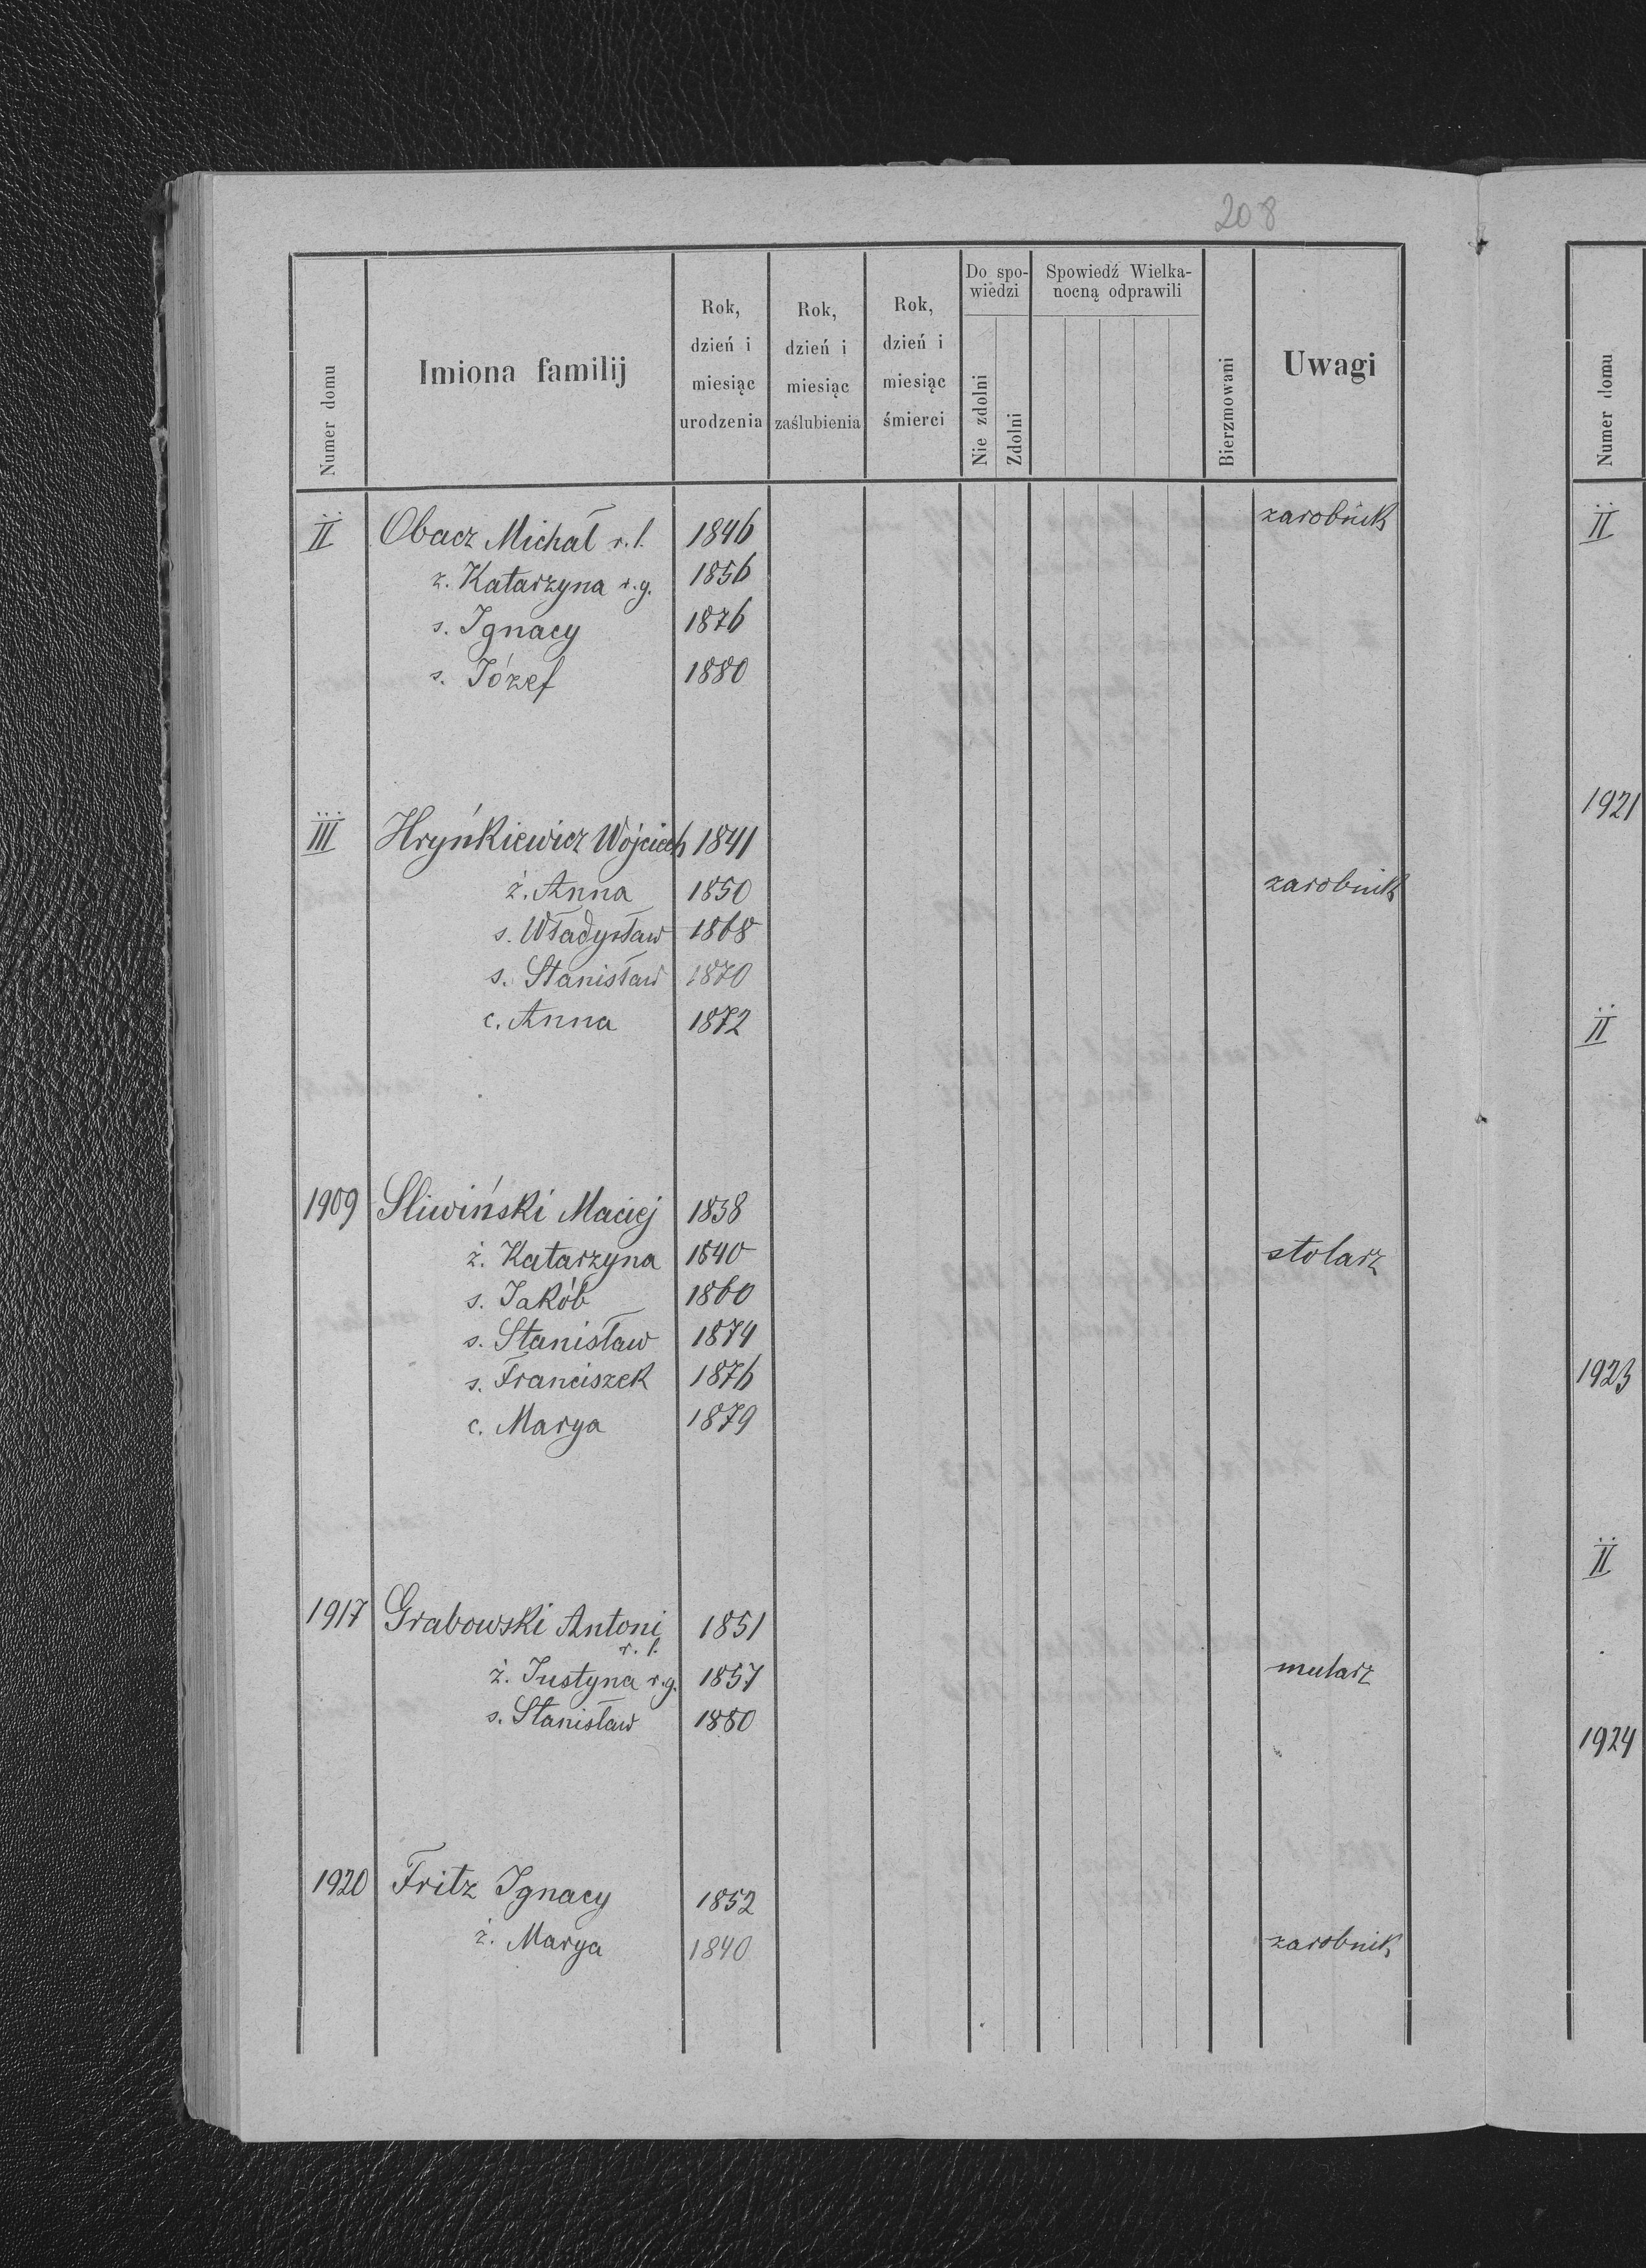 208
Numer domu
Imiona familij
Rok, dzień i miesiąc urodzenia
Rok, dzień i miesiąc zaślubienia
Rok, dzień i miesiąc śmierci
Do spo-
wiedzi
Nie zdolni
Zdolni
Spowiedź Wielka-
nocną odprawili
Bierzmowani
Uwagi
Numer domu
II Obacz Michał r. l. 1846 zarobnik
ż. Katarzyna r. g. 1856
s. Ignacy 1876
s. Józef 1880
III Hryńkiewicz Wojciech 1841
ż. Anna 1850 zarobnik
s. Władysław 1868
s. Stanisław 1870
c. Anna 1872
1909 Sliwiński Maciej 1838
ż. Katarzyna 1840 stolarz
s. Jakób 1860
s. Stanisław 1874
s. Franciszek 1876
c. Marya 1879
1917 Grabowski Antoni 1851
r. l.
ż. Justyna r. g. 1857 mularz
s. Stanisław 1880
1920 Fritz Ignacy 1852
ż. Marya 1840 zarobnik
II
1921
II
1923
II
1924